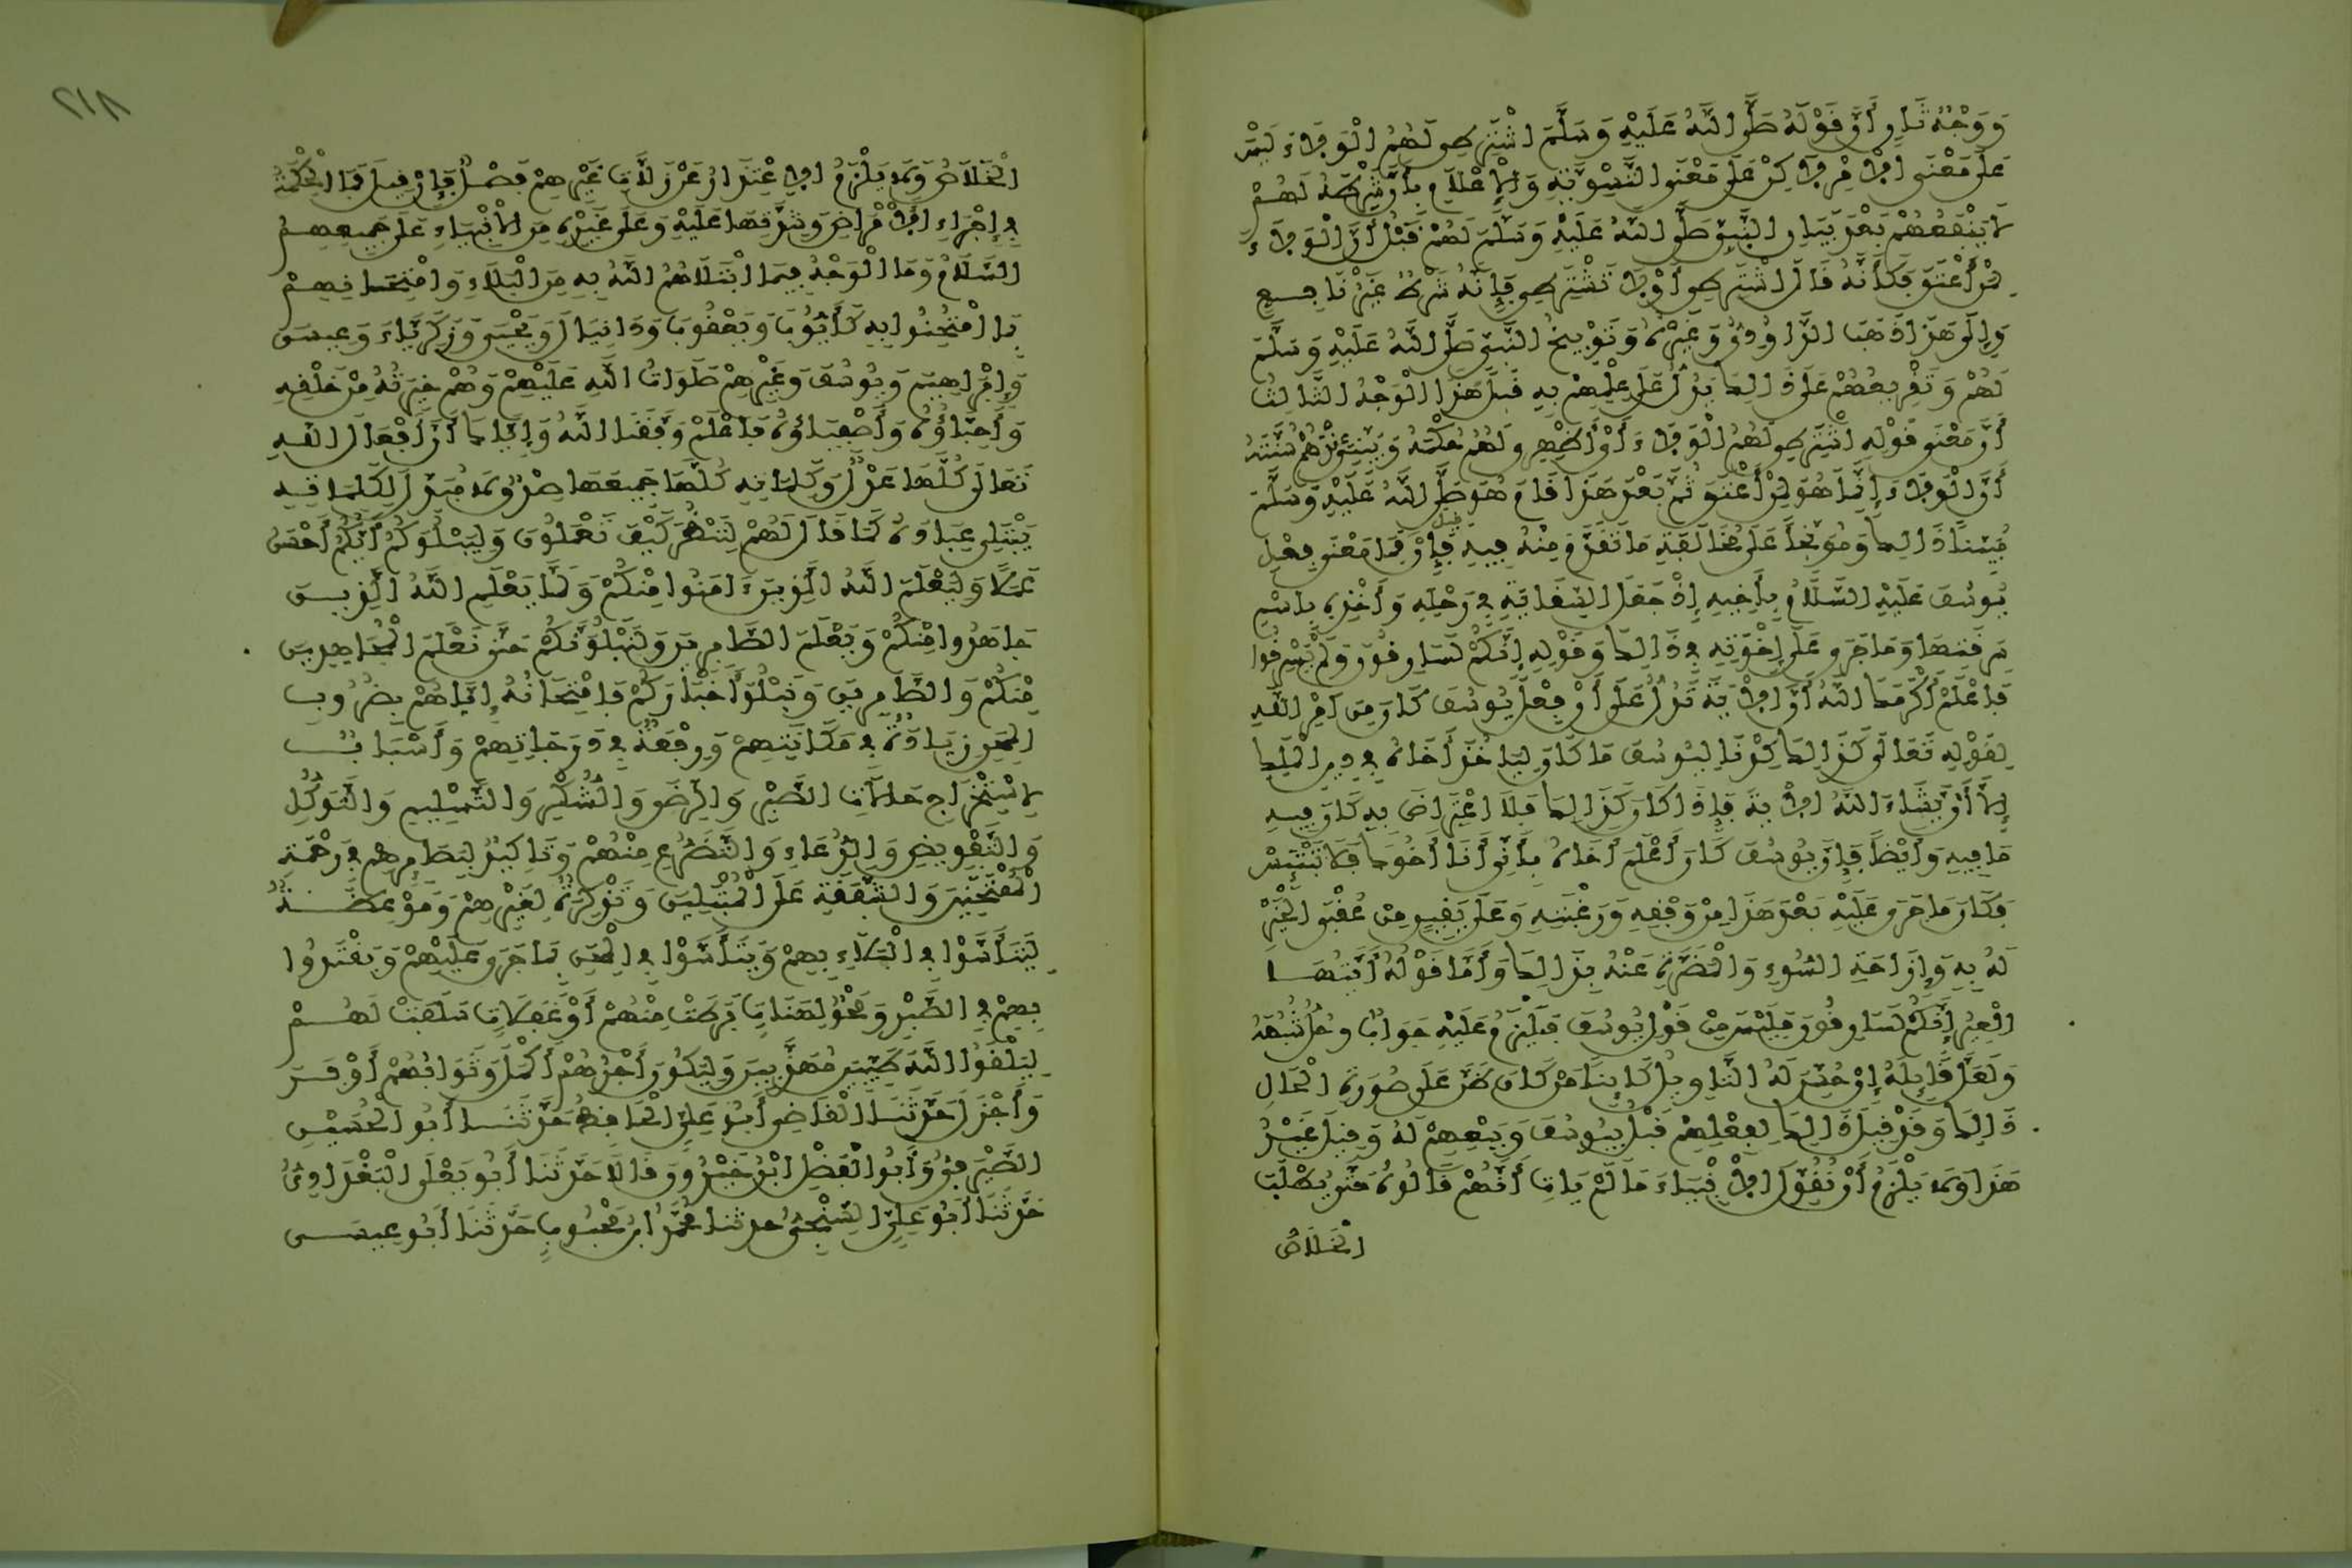 وَوَجْهٌ ثَانٍ أَنَّ قَوْلَهُ صَلَّى اللَّهُ عَلَيْهِ وَسَلَّمَ اشْتَرِطِي لَهُمُ الْوَلَاءَ لَيْسَ
عَلَى مَعْنَى الْأَمْرِ لَاكِنْ عَلَى مَعْنَى التَّسْوِيَةِ وَالْإِعْلَامِ بِأَنَّ شَرْطَهُ لَهُمْ
لَا يَنْفَعُهُمْ بَعْدَ بَيَانِ النَّبِيِّ صَلَّى اللَّهُ عَلَيْهِ وَسَلَّمَ لَهُمْ قَبْلُ أَنَّ الْوَلَاءَ
لِمَنْ أَعْتَقَ فَكَأَنَّهُ قَالَ اشْتَرِطِي أَوْ لَا تَشْتَرِطِي فَإِنَّهُ شَرْطٌ غَيْرُ نَافِعٍ
وَإِلَى هَذَا ذَهَبَ الدَّاوُدِيُّ وَغَيْرُهُ وَتَوْبِيخُ النَّبِيِّ صَلَّى اللَّهُ عَلَيْهِ وَسَلَّمَ
لَهُمْ وَتَقْرِيعُهُمْ عَلَى ذَالِكَ يَدُلُّ عَلَى عِلْمِهِمْ بِهِ قَبْلَ هَذَا الْوَجْهُ الثَّالِثُ
أَنَّ مَعْنَى قَوْلِهِ اشْتَرِطِي لَهُمُ الْوَلَاءَ أَيْ أَظْهِرِي لَهُمْ حُكْمَهُ وَبَيِّنِي عِنْدَهُمْ سُنَّتَهُ
أَنَّ الْوَلَاءَ إِنَّمَا هُوَ لِمَنْ أَعْتَقَ ثُمَّ بَعْدَ هَذَا قَامَ هُوَ صَلَّى اللَّهُ عَلَيْهِ وَسَلَّمَ
مُبَيِّنًا ذَالِكَ وَمُوَبِّخًا عَلَى مُخَالَفَةِ مَا تَقَدَّمَ مِنْهُ فِيهِ فَإِنْ قِيلَ فَمَا مَعْنَى فِعْلِ
يُوسُفَ عَلَيْهِ السَّلَامُ بِأَخِيهِ إِذْ جَعَلَ السِّقَايَةَ فِي رَحْلِهِ وَأَخْذِهِ بِاسْمِ
سَرِقَتِهَا وَمَا جَرَى عَلَى إِخْوَتِهِ فِي ذَالِكَ وَقَوْلِهِ إِنَّكُمْ لَسَارِقُونَ وَلَمْ يَسْرِقُوا
فَاعْلَمْ أَكْرَمَكَ اللَّهُ أَنَّ الْآيَةَ تَدُلُّ عَلَى أَنَّ فِعْلَ يُوسُفَ كَانَ مِنْ أَمْرِ اللَّهِ
لِقَوْلِهِ تَعَالَى كَذَالِكَ كِدْنَا لِيُوسُفَ مَا كَانَ لِيَأْخُذَ أَخَاهُ فِي دِينِ الْمَلِكِ
إِلَّا أَنْ يَشَاءَ اللَّهُ الْآيَةَ فَإِذَا كَانَ كَذَالِكَ فَلَا اعْتِرَاضَ بِهِ كَانَ فِيهِ
مَا فِيهِ وَأَيْضًا فَإِنَّ يُوسُفَ كَانَ أَعْلَمَ أَخَاهُ بِأَنِّي أَنَا أَخُوكَ فَلَا تَبْتَئِسْ
فَكَانَ مَا جَرَى عَلَيْهِ بَعْدَ هَذَا مِنْ وَفْقِهِ وَرَغْبَتِهِ وَعَلَى يَقِينٍ مِنْ عُقْبَى الْخَيْرِ
لَهُ بِهِ وَإِزَاحَةِ السُّوءِ وَالْمَضَرَّةِ عَنْهُ بِذَالِكَ وَأَمَّا قَوْلُهُ أَيَّتُهَا
الْعِيرُ إِنَّكُمْ لَسَارِقُونَ فَلَيْسَ مِنْ قَوْلِ يُوسُفَ فَيَلْزَمُ عَلَيْهِ جَوَابٌ وَحَلُّ شُبْهَةٍ
وَلَعَلَّ قَائِلَهُ إِنْ حُسِّنَ لَهُ التَّأْوِيلُ كَائِنًا مَنْ كَانَ ظَنَّ عَلَى صُورَةِ الْحَالِ
ذَالِكَ وَقَدْ قِيلَ قَالَ ذَالِكَ لِفِعْلِهِمْ قَبْلُ بِيُوسُفَ وَبَيْعِهِمْ لَهُ وَقِيلَ غَيْرُ
هَذَا وَلَا يَلْزَمُ أَنْ نُقَوِّلَ الْأَنْبِيَاءَ مَا لَمْ يَأْتِ أَنَّهُمْ قَالُوهُ حَتَّى يُطْلَبَ
الْخَلَاصُ
٢١٨
الْخَلَاصُ وَلَا يَلْزَمُ الِاعْتِذَارُ عَنْ زَلَّاتِ غَيْرِهِمْ فَصْلٌ فَإِنْ قِيلَ فَمَا الْحِكْمَةُ
فِي إِجْرَاءِ الْأَمْرَاضِ وَشِدَّتِهَا عَلَيْهِ وَعَلَى غَيْرِهِ مِنَ الْأَنْبِيَاءِ عَلَى جَمِيعِهِمُ
السَّلَامُ وَمَا الْوَجْهُ فِيمَا ابْتَلَاهُمُ اللَّهُ بِهِ مِنَ الْبَلَاءِ وَامْتِحَانِهِمْ
بِمَا امْتُحِنُوا بِهِ كَأَيُّوبَ وَيَعْقُوبَ وَدَانِيَالَ وَيَحْيَى وَزَكَرِيَّاءَ وَعِيسَى
وَإِبْرَاهِيمَ وَيُوسُفَ وَغَيْرِهِمْ صَلَوَاتُ اللَّهِ عَلَيْهِمْ وَهُمْ خِيرَتُهُ مِنْ خَلْقِهِ
وَأَحِبَّاؤُهُ وَأَصْفِيَاؤُهُ فَاعْلَمْ وَفَّقَنَا اللَّهُ وَإِيَّاكَ أَنَّ أَفْعَالَ اللَّهِ
تَعَالَى كُلَّهَا عَدْلٌ وَكَلِمَاتِهِ كُلَّهَا جَمِيعَهَا صِدْقٌ لَا مُبَدِّلَ لِكَلِمَاتِهِ
يَبْتَلِي عِبَادَهُ كَمَا قَالَ لَهُمْ لِنَنْظُرَ كَيْفَ تَعْمَلُونَ وَلِيَبْلُوَكُمْ أَيُّكُمْ أَحْسَنُ
عَمَلًا وَلِيَعْلَمَ اللَّهُ الَّذِينَ ءَامَنُوا مِنْكُمْ وَلَمَّا يَعْلَمِ اللَّهُ الَّذِينَ
جَاهَدُوا مِنْكُمْ وَيَعْلَمَ الصَّابِرِينَ وَلَنَبْلُوَنَّكُمْ حَتَّى نَعْلَمَ الْمُجَاهِدِينَ
مِنْكُمْ وَالصَّابِرِينَ وَنَبْلُوَ أَخْبَارَكُمْ فَامْتِحَانُهُ إِيَّاهُمْ بِضُرُوبِ
الْمِحَنِ زِيَادَةٌ فِي مَكَانَتِهِمْ وَرِفْعَةٌ فِي دَرَجَاتِهِمْ وَأَسْبَابٌ
لِاسْتِخْرَاجِ حَالَاتِ الصَّبْرِ وَالرِّضَى وَالشُّكْرِ وَالتَّسْلِيمِ وَالتَّوَكُّلِ
وَالتَّفْوِيضِ وَالدُّعَاءِ وَالتَّضَرُّعِ مِنْهُمْ وَتَأْكِيدٌ لِبَصَائِرِهِمْ فِي رَحْمَةِ
الْمُمْتَحَنِينَ وَالشَّفَقَةِ عَلَى الْمُبْتَلَيْنَ وَتَذْكِرَةٌ لِغَيْرِهِمْ وَمَوْعِظَةٌ
لِيَتَأَسَّوْا فِي الْبَلَاءِ بِهِمْ وَيَتَأَسَّوْا فِي الْمِحَنِ بِمَا جَرَى عَلَيْهِمْ وَيَقْتَدُوا
بِهِمْ فِي الصَّبْرِ وَمَحْوٌ لِهَنَاتٍ فَرَطَتْ مِنْهُمْ أَوْ غَفَلَاتٍ سَلَفَتْ لَهُمْ
لِيَلْقَوُا اللَّهَ طَيِّبِينَ مُهَذَّبِينَ وَلِيَكُونَ أَجْرُهُمْ أَكْمَلَ وَثَوَابُهُمْ أَوْفَرَ
وَأَجْزَلَ حَدَّثَنَا الْقَاضِي أَبُو عَلِيٍّ الْحَافِظُ حَدَّثَنَا أَبُو الْحُسَيْنِ
الصَّيْرَفِيُّ وَأَبُو الْفَضْلِ ابْنُ خَيْرُونَ قَالَا حَدَّثَنَا أَبُو يَعْلَى الْبَغْدَادِيُّ
حَدَّثَنَا أَبُو عَلِيٍّ السِّنْجِيُّ حدثنا مُحَمَّدُ ابْنُ مَحْبُوبٍ حَدَّثَنَا أَبُو عِيسَى